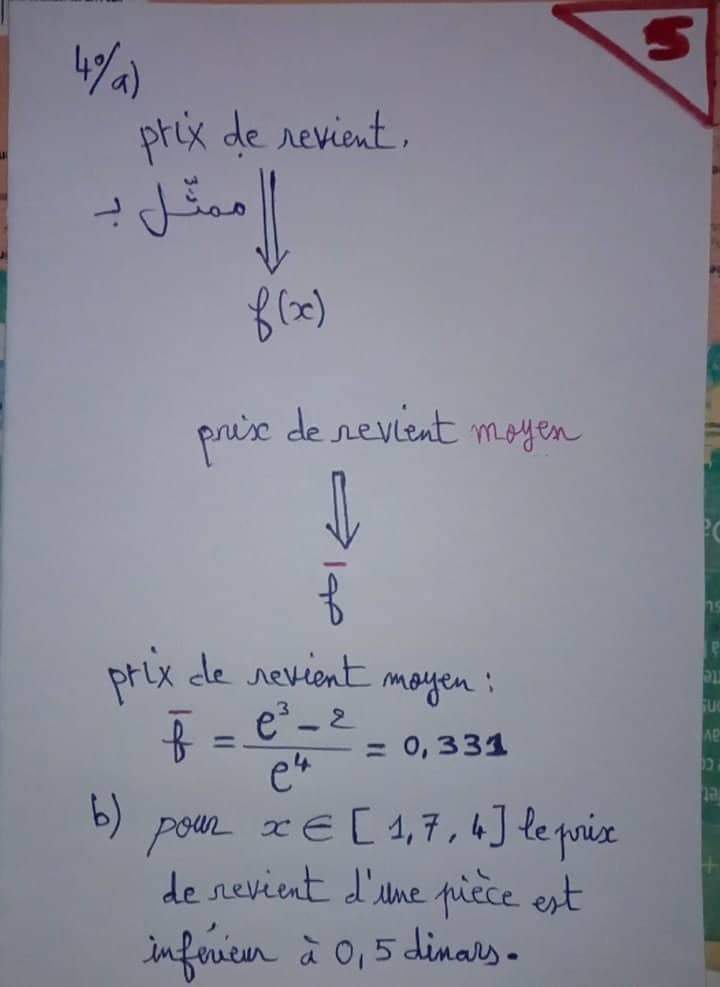 5
4°/a)
prix de revient.
ممثّل بـ
f(x)
prix de revient moyen
f̄
prix de revient moyen :
f̄ = (e³ - 2)/e⁴ = 0,331
b) pour x ∈ [1,7, 4] le prix
de revient d'une pièce est
inférieur à 0,5 dinars.